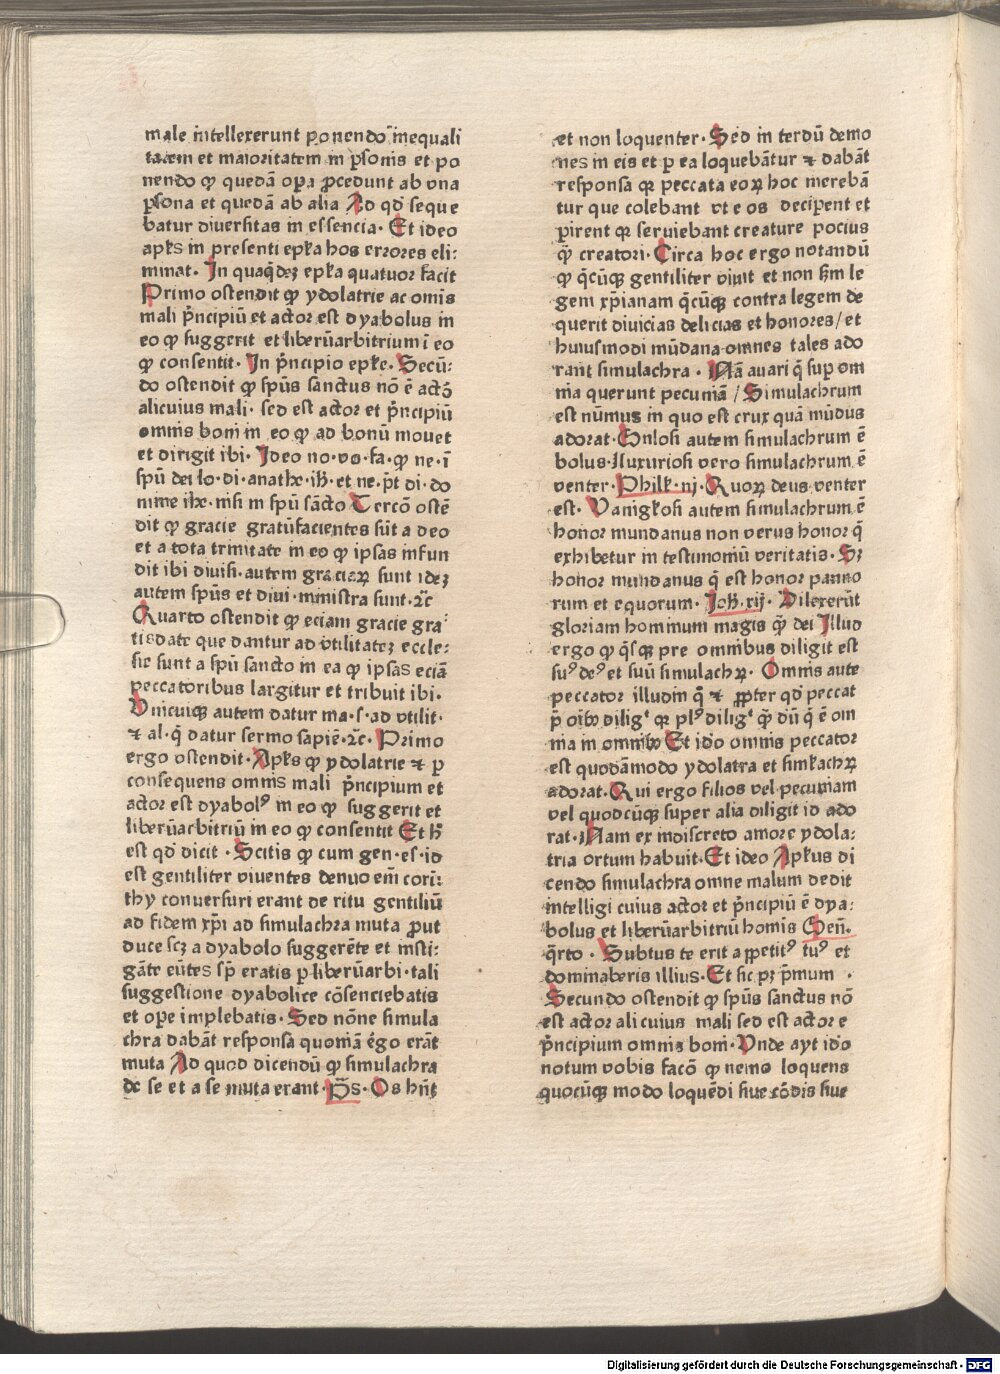 male intellexerunt ponendo inequali
tatem et maioritatem in ꝑsonis et po
nendo ꝙ quedā oꝑa ꝓcedunt ab vna
ꝑsona et quedā ab alia Ad qḋ seque
batur diuersitas in essencia. Et ideo
apꝉs in presenti epꝉa hos errores eli-
minat. In quaq̄deꝫ epꝉa quatuor facit
Primo ostendit ꝙ ydolatrie ac omīs
mali pͥncipiū et actor est dyabolus in
eo ꝙ suggerit et liberūarbitrium ī eo
ꝙ consentit. In pͥncipio epꝉe. Secū-
do ostendit ꝙ spūs sanctus nō ē actoꝛ
alicuius mali. sed est actor et pͥncipiū
omnis boni in eo ꝙ ad bonū mouet
et dirigit ibi. Ideo no.vo.fa.ꝙ ne.ī
spū dei lo.di.anathe.ih̄. et ne.p̄t di.do
mine ihe. nisi in spū sācto Tercō ostē
dit ꝙ gracie gratūfacientes sūt a deo
et a tota trinitate in eo ꝙ ipsas infun
dit ibi diuisi. autem graciaꝝ sunt ideꝫ
autem spūs et diui. ministra sunt. ⁊c̄
Quarto ostendit ꝙ eciam gracie gra
tisdate que dantur ad vtilitateꝫ eccle-
sie sunt a spū sancto in ea ꝙ ipsas eciā
peccatoribus largitur et tribuit ibi.
Vnicuiqꝫ autem datur ma.s.ad vtilit.
⁊ al.q̄ datur sermo sapiē.⁊c̄. Primo
ergo ostendit. Apꝉs ꝙ ydolatrie ⁊ ꝑ
consequens omnis mali pͥncipium et
actor est dyabolꝰ in eo ꝙ suggerit et
liberūarbitriū in eo ꝙ consentit Et h̄
est qḋ dicit. Scitis ꝙ cum gen.es.id
est gentiliter viuentes denuo em̄ corī-
thy conuersuri erant de ritu gentiliū
ad fidem xp̄i ad simulachra muta ꝓut
duce scꝫ a dyabolo suggerēte et insti-
gāte eūtes sp̄ eratis ꝑ liberūarbi.tali
suggestione dyabolice cōsenciebatis
et oꝑe implebatis. Sed nōne simula
chra dabāt responsa quomā ēgo erāt
muta Ad quod dicendū ꝙ simulachra
de se et a se muta erant. P̄s. Os hn̄t
et non loquenter. Sed in terdū demo
nes in eis et ꝑ ea loquebātur ⁊ dabāt
responsa qꝛ peccata eoꝝ hoc merebā
tur que colebant vt eos decipent et
ꝑirent qꝛ seruiebant creature pocius
q̄ꝫ creatori. Circa hoc ergo notandū
ꝙ q̄cūqꝫ gentiliter viuit et non ẜm le
gem xp̄ianam q̄cūqꝫ contra legem de
querit diuicias delicias et honores/et
huiusmodi mūdana omnes tales ado
rant simulachra. Nā auari q̄ suꝑ om
nia querunt pecuniā / Simulachrum
est nūmus in quo est crux quā mūdus
adorat. Gulosi autem simulachrum ē
bolus. luxuriosi vero simulachrum ē
venter. Philꝉ.iij. Quoꝝ deus venter
est. Vanigꝉosi autem simulachrum ē
honor mundanus non verus honor q̄
exhibetur in testimoniū veritatis. Sꝫ
honor mundanus q̄ est honor panno
rum et equorum. Joh̄.xij. Dilexerūt
gloriam hominum magis q̄ꝫ dei Illud
ergo ꝙ q̄sqꝫ pre omnibus diligit est
suꝰ deꝰ et suū simulachꝝ. Omnis aute
peccator illudin q̄ ⁊ ꝓpter qḋ peccat
p̄ oībꝫ diligͭ qꝛ plꝰ diligͭ q̄ꝫ dū q̄ ē om
nia in omnibꝫ Et ido omnis peccator
est quodāmodo ydolatra et simꝉachꝝ
adorat. Qui ergo filios vel pecuniam
vel quodcūqꝫ super alia diligit id ado
rat. Nam ex indiscreto amore ydola-
tria ortum habuit. Et ideo Apꝉus di
cendo simulachra omne malum dedit
intelligi cuius actor et pͥncipiū ē dya-
bolus et liberūarbitriū homis Gen̄.
q̄rto. Subtus te erit appetitꝰ tuꝰ et
dominaberis illius. Et sic pꝫ pͥmum.
Secundo ostendit ꝙ spūs sanctus nō
est actor alicuius mali sed est actor e
pͥncipium omnis boni. Vnde ayt ido
notum vobis facō ꝙ nemo loquens
quocūqꝫ modo loquēdi siue cōdis siue
Digitalisierung gefördert durch die Deutsche Forschungsgemeinschaft - DFG